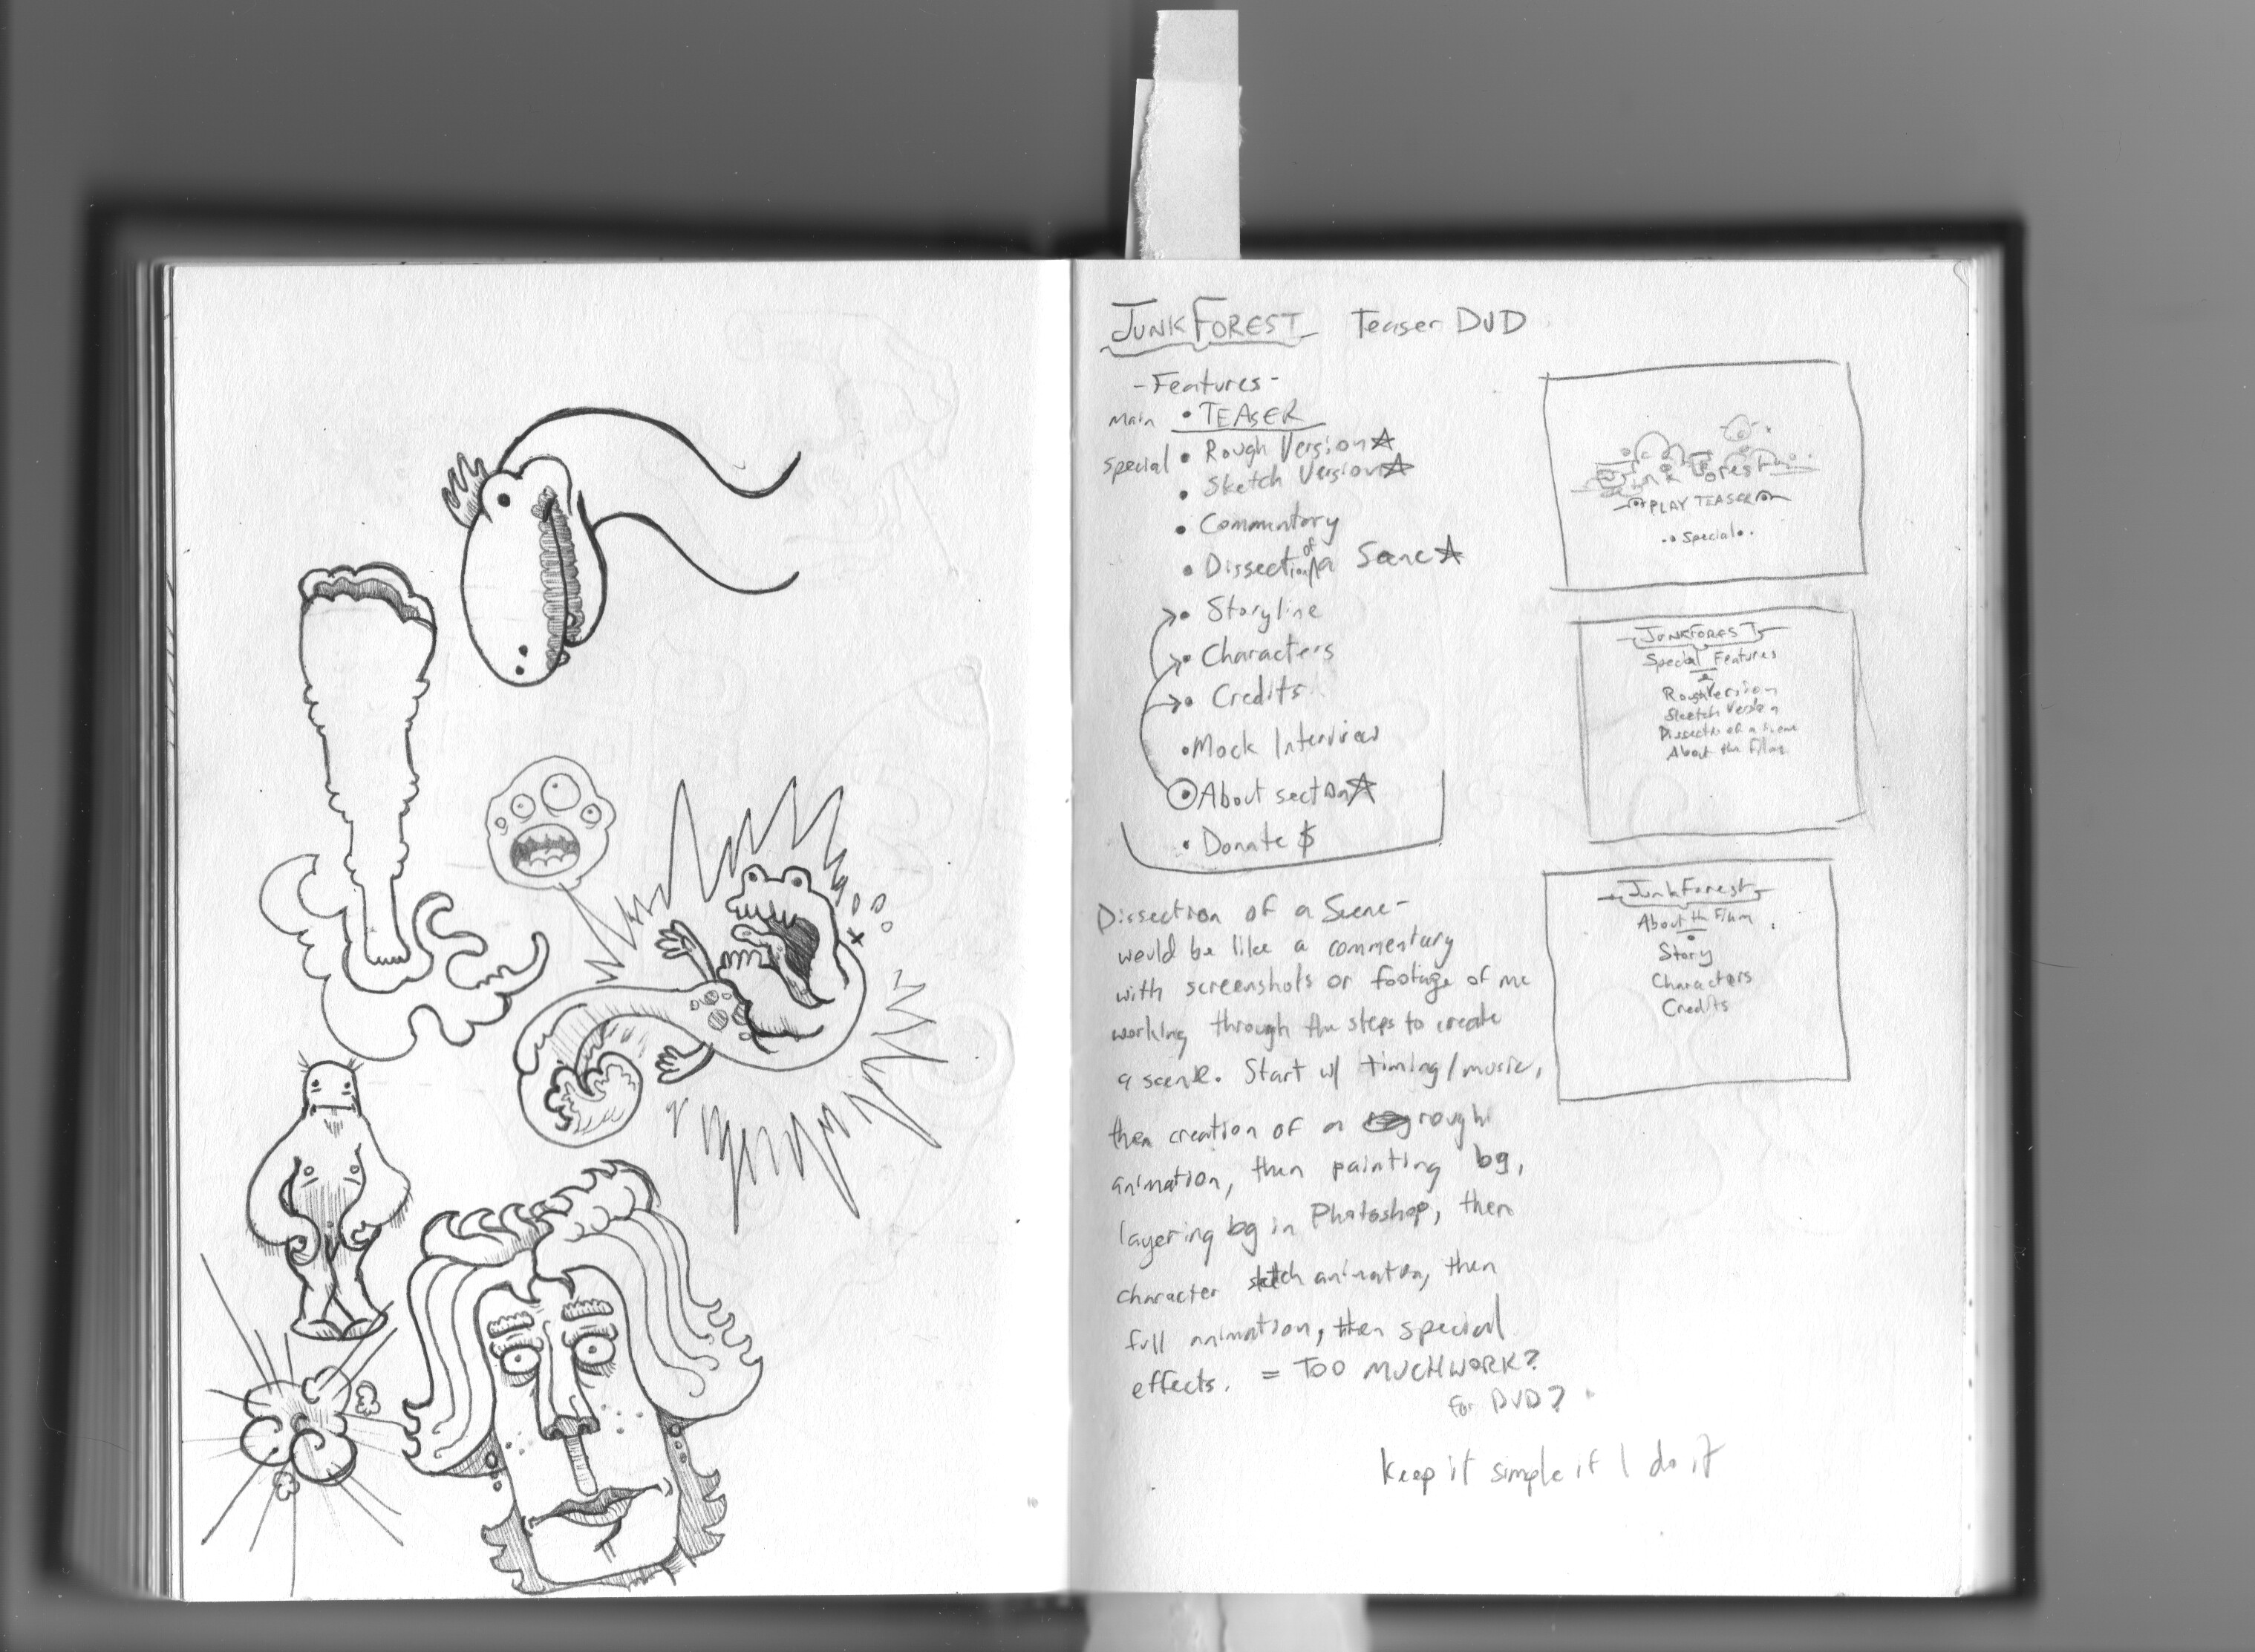 JUNKFOREST Teaser DVD
- Features -
Main • TEASER
Special • Rough Version☆
• Sketch Version☆
• Commentary
• Dissection of a Scene☆
• Storyline
• Characters
• Credits
• Mock Interview
• About section☆
• Donate $
Dissection of a Scene -
would be like a commentary
with screenshots or footage of me
working through the steps to create
a scene. Start w/ timing/music,
then creation of a rough
animation, then painting bg,
layering bg in Photoshop, then
character sketch animation, then
full animation, then special
effects. = TOO MUCH WORK?
for DVD?
keep it simple if I do it
Junk Forest
PLAY TEASER
•• Special ••
JUNKFOREST
Special Features
Rough Version
Sketch Version
Dissection of a Scene
About the Film
JunkForest
About the Film
Story
Characters
Credits